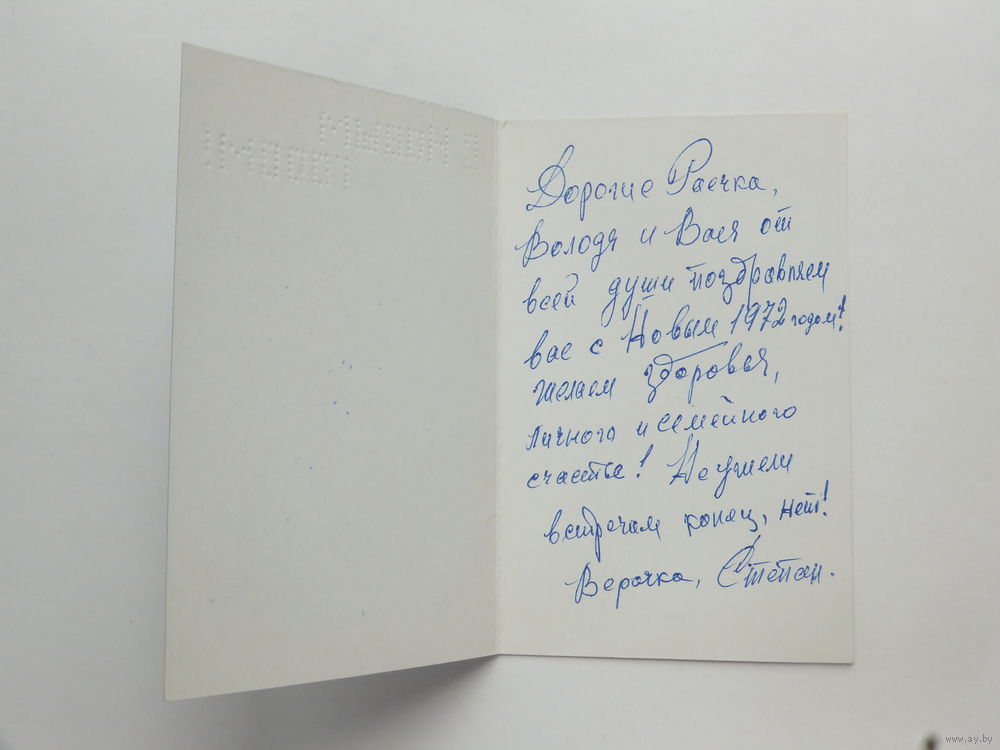 С НОВЫМ
ГОДОМ!
Дорогие Раечка,
Володя и Вася от
всей души поздравляем
вас с Новым 1972 годом!
желаем здоровья,
личного и семейного
счастья! Неужели
встречам конец, нет!
Верочка, Степан.
www.ay.by